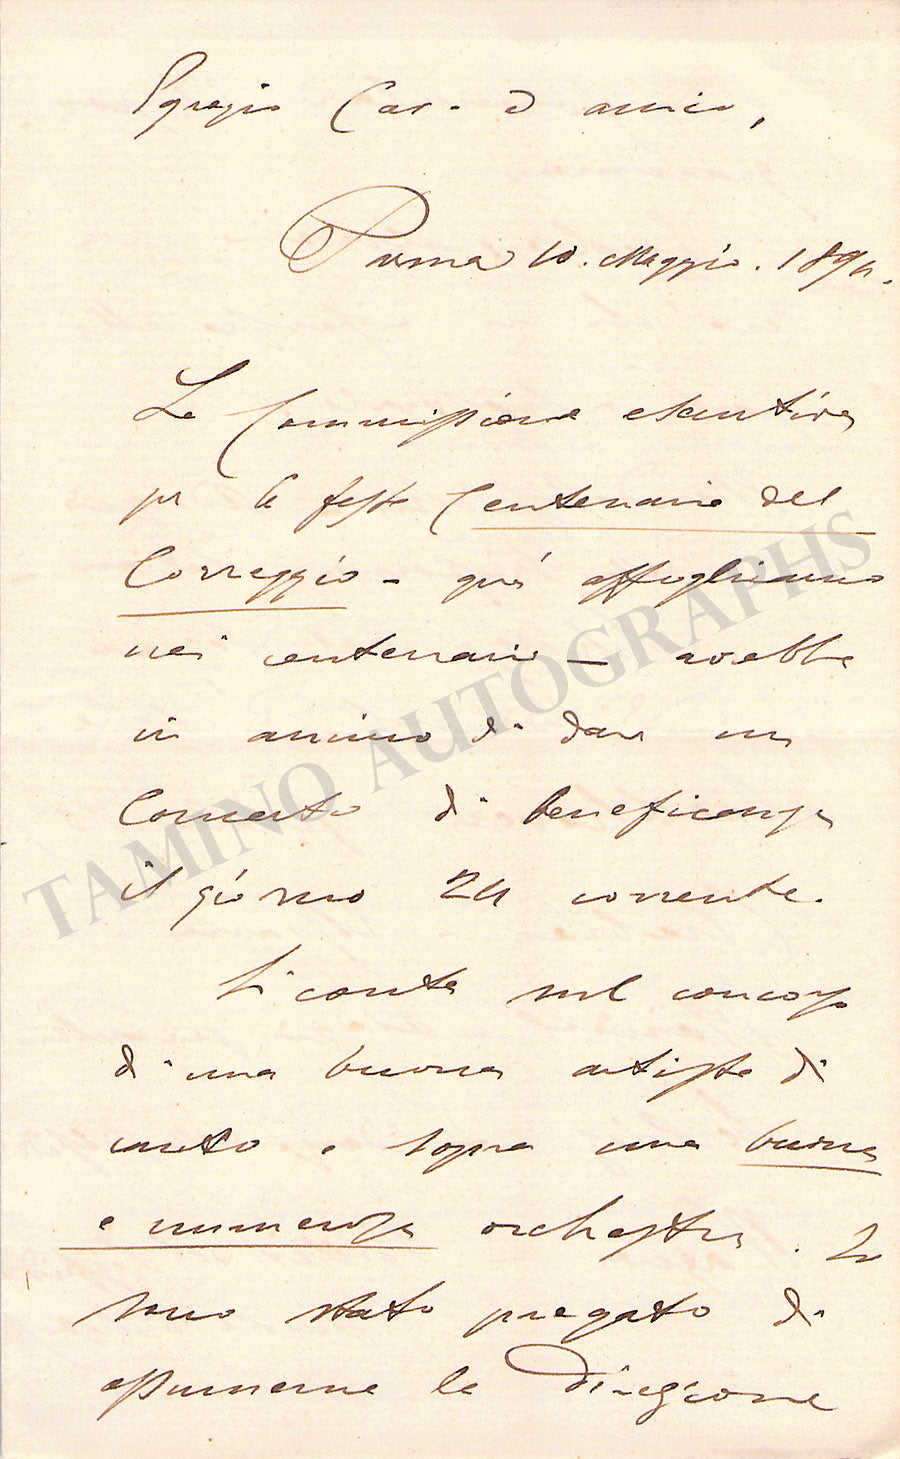 Egregio Cav. ed amico,
Parma 10. Maggio. 1894.
La Commissione esecutiva
per le feste Centenarie del
Correggio - quì affoghiamo
nei centenari - avrebbe
in animo di dare un
Concerto di beneficenza
il giorno 24 corrente.
Si conta sul concorso
di una buona artista di
canto e sopra una buona
e numerosa orchestra. Io
sono stato pregato di
assumerne la direzione
TAMINO AUTOGRAPHS